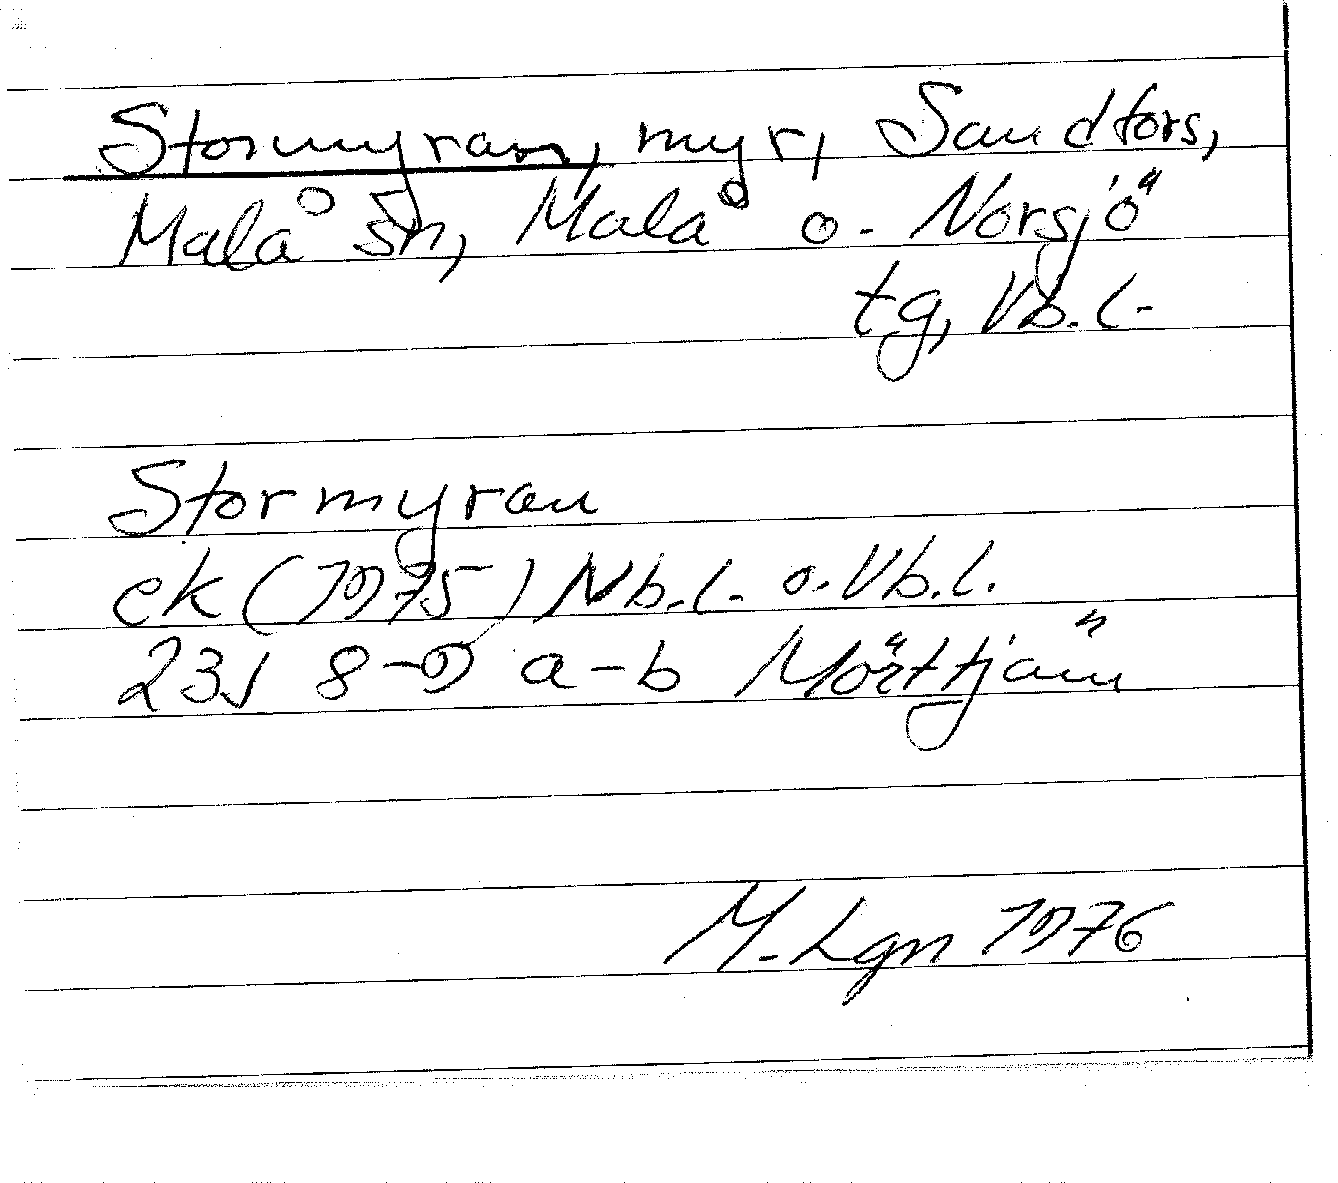 Stormyran, myr, Sandfors,
Malå sn, Malå o. Norsjö
tg, Vb.l.
Stormyran
ek (1975) Nb.l. o. Vb.l.
23J 8-9 a-b Mörttjärn
M. Lgn 1976